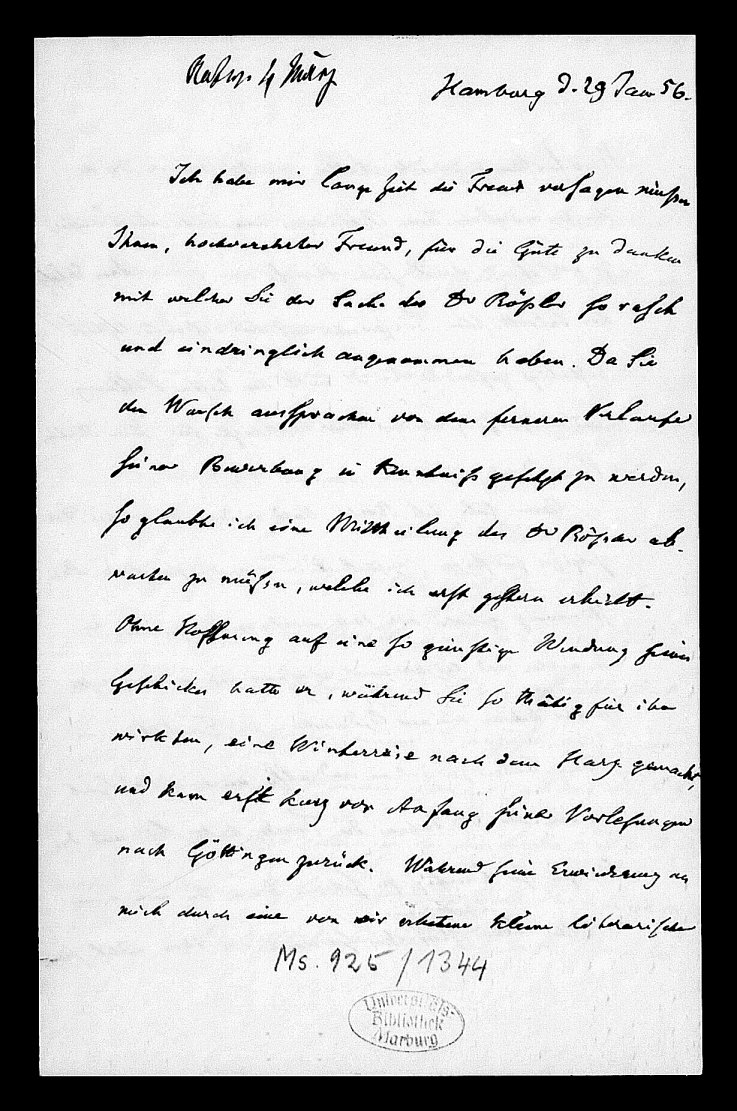 4 März
Hamburg d. 29 Jan 56.
Ich habe mir lange Zeit die Freude versagen müssen
Ihnen, hochverehrter Freund, für die Güte zu danken
mit welcher Sie der Sache des Dr Rößler so rasch
und eindringlich angenommen haben. Da Sie
den Wunsch aussprachen von dem ferneren Verlaufe
seiner Bewerbung in Kenntniß gesetzt zu werden,
so glaubte ich eine Mittheilung des Dr Rößler ab-
warten zu müssen, welche ich erst gestern erhielt.
Ohne Hoffnung auf eine so günstige Wendung seines
Geschickes hatte er, während Sie so thätig für ihn
wirkten, eine Winterreise nach dem Harz gemacht,
und kam erst kurz vor Anfang seiner Vorlesungen
nach Göttingen zurück. Während seine Erwiederung an
mich durch eine von mir erbetene kleine literarische
Ms. 925/1344
Universitäts-
Bibliothek
Marburg